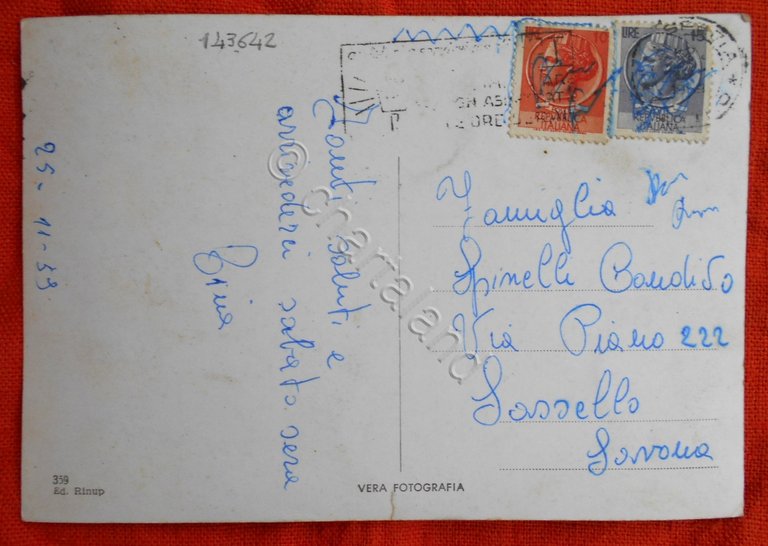 143642
Tanti saluti e
arrivederci sabato sera
Rina
25-11-59
LIRE
LIRE 15
REPUBBLICA
ITALIANA
REPUBBLICA
ITALIANA
Famiglia
Spinelli Candido
Via Piano 222
Sassello
Savona
359
Ed. Rinup
VERA FOTOGRAFIA
© chartaland